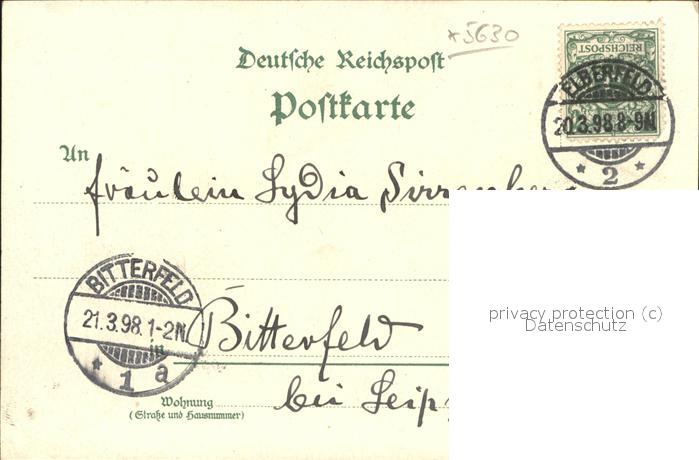 *5630
Deutsche Reichspost
Postkarte
REICHSPOST
ELBERFELD
20.3.98.8-9N
* 2 *
An
Fräulein Lydia
BITTERFELD
21.3.98.1-2N.
* 1 a
in
Bitterfeld
bei Leip
Wohnung
(Straße und Hausnummer)
privacy protection (c)
Datenschutz